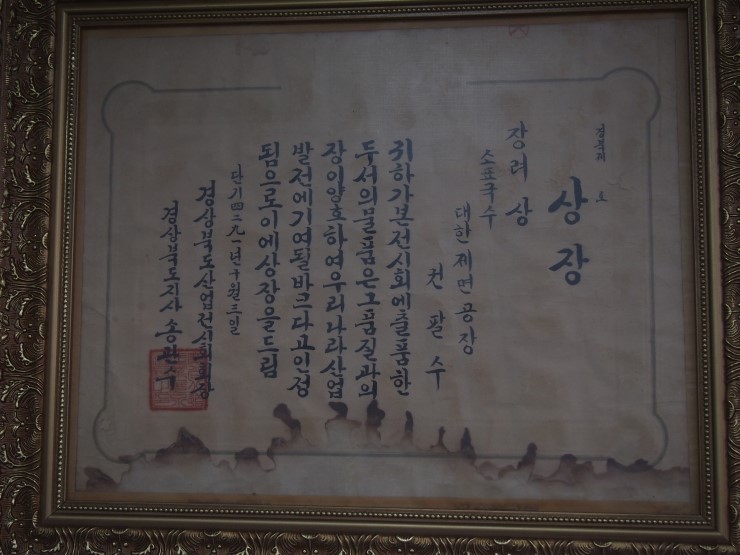 경북제 호
상장
장려상
소표국수
대한제면공장
권팔수
귀하가본전시회에출품한
두서의물품은그품질과의
장이양호하여우리나라산업
발전에기여될바크다고인정
됨으로이에상장을드림
단기四二九一년十월三일
경상북도산업전시회회장
경상북도지사 송관수